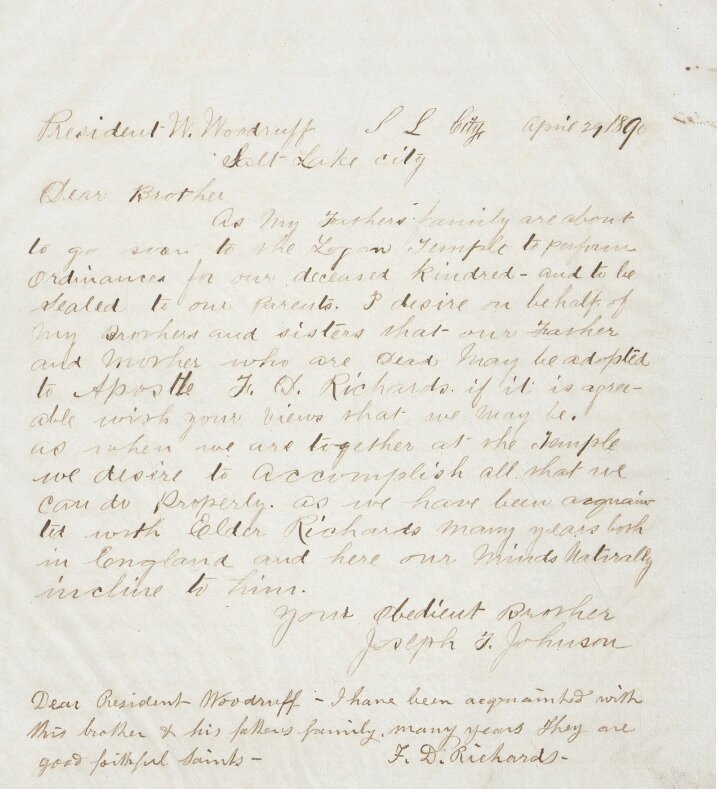 President W. Woodruff S L City April 29 1890
Salt Lake city
Dear Brother
As My Fathers family are about
to go soon to the Logan Temple to perform
Ordinances for our deceased Kindred - and to be
Sealed to our Parents. I desire on behalf of
my Brothers and sisters that our Father
and Mother who are Dead May be adopted
to Apostle F. D. Richards. if it is agree-
able with your views that we may be.
as when we are together at the Temple
we desire to accomplish all that we
can do Properly. as we have been acquain
ted with Elder Richards many years both
in England and here our Minds Naturally
incline to him.
Your Obedient Brother
Joseph F. Johnson
Dear President Woodruff - I have been acquainted with
this brother & his fathers family many years They are
good faithful Saints - F. D. Richards -